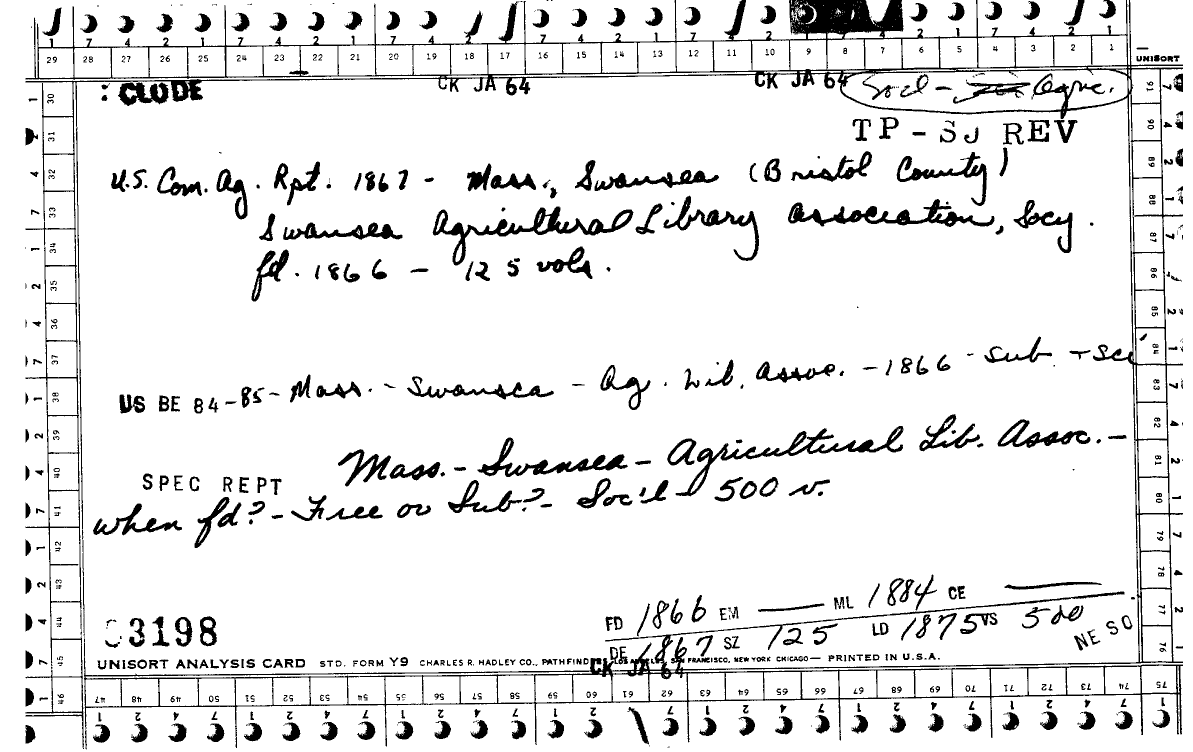 29 28 27 26 25 24 23 22 21 20 19 18 17 16 15 14 13 12 11 10 9 8 7 6 5 4 3 2 1
UNISORT
: CLUDE CK JA 64 CK JA 64 Socl - Agric.
TP - SJ REV
U.S. Com. Ag. Rpt. 1867 - Mass., Swansea (Bristol County)
Swansea Agricultural Library Association, Socy.
fd. 1866 - 125 vols.
US BE 84-85- Mass. - Swansea - Ag. Lib. Assoc. - 1866 - Sub - Sci
SPEC REPT Mass. - Swansea - Agricultural Lib. Assoc. -
when fd? - Free or Sub? - Soc'l - 500 v.
FD 1866 EM — ML 1884 CE —
DE 1867 SZ 125 LD 1875 VS 500
NE SO
3198
UNISORT ANALYSIS CARD STD. FORM Y9 CHARLES R. HADLEY CO., PATHFINDERS LOS ANGELES, SAN FRANCISCO, NEW YORK CHICAGO — PRINTED IN U.S.A.
CK JA 64
47 48 49 50 51 52 53 54 55 56 57 58 59 60 61 62 63 64 65 66 67 68 69 70 71 72 73 74 75